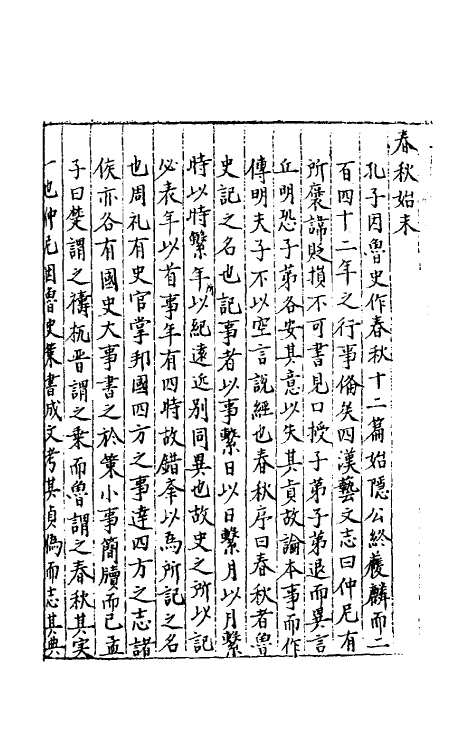 春秋始末
孔子因魯史作春秋十二篇始隱公終獲麟而二
百四十二年之行事備矣四漢藝文志曰仲尼有
所褒諱貶損不可書見口授子弟子弟退而異言
丘明恐子弟各安其意以失其真故論本事而作
傳明夫子不以空言說經也春秋序曰春秋者魯
史記之名也記事者以事繫日以日繫月以月繫
時以時繫年所以紀遠近别同異也故史之所以記
必表年以首事年有四時故錯夆以為所記之名
也周礼有史官掌邦國四方之事達四方之志諸
侯亦各有國史大事書之於策小事簡牘而已孟
子曰楚謂之檮杌晋謂之乗而魯謂之春秋其実
一也仲尼因魯史策書成文考其真偽而志其典